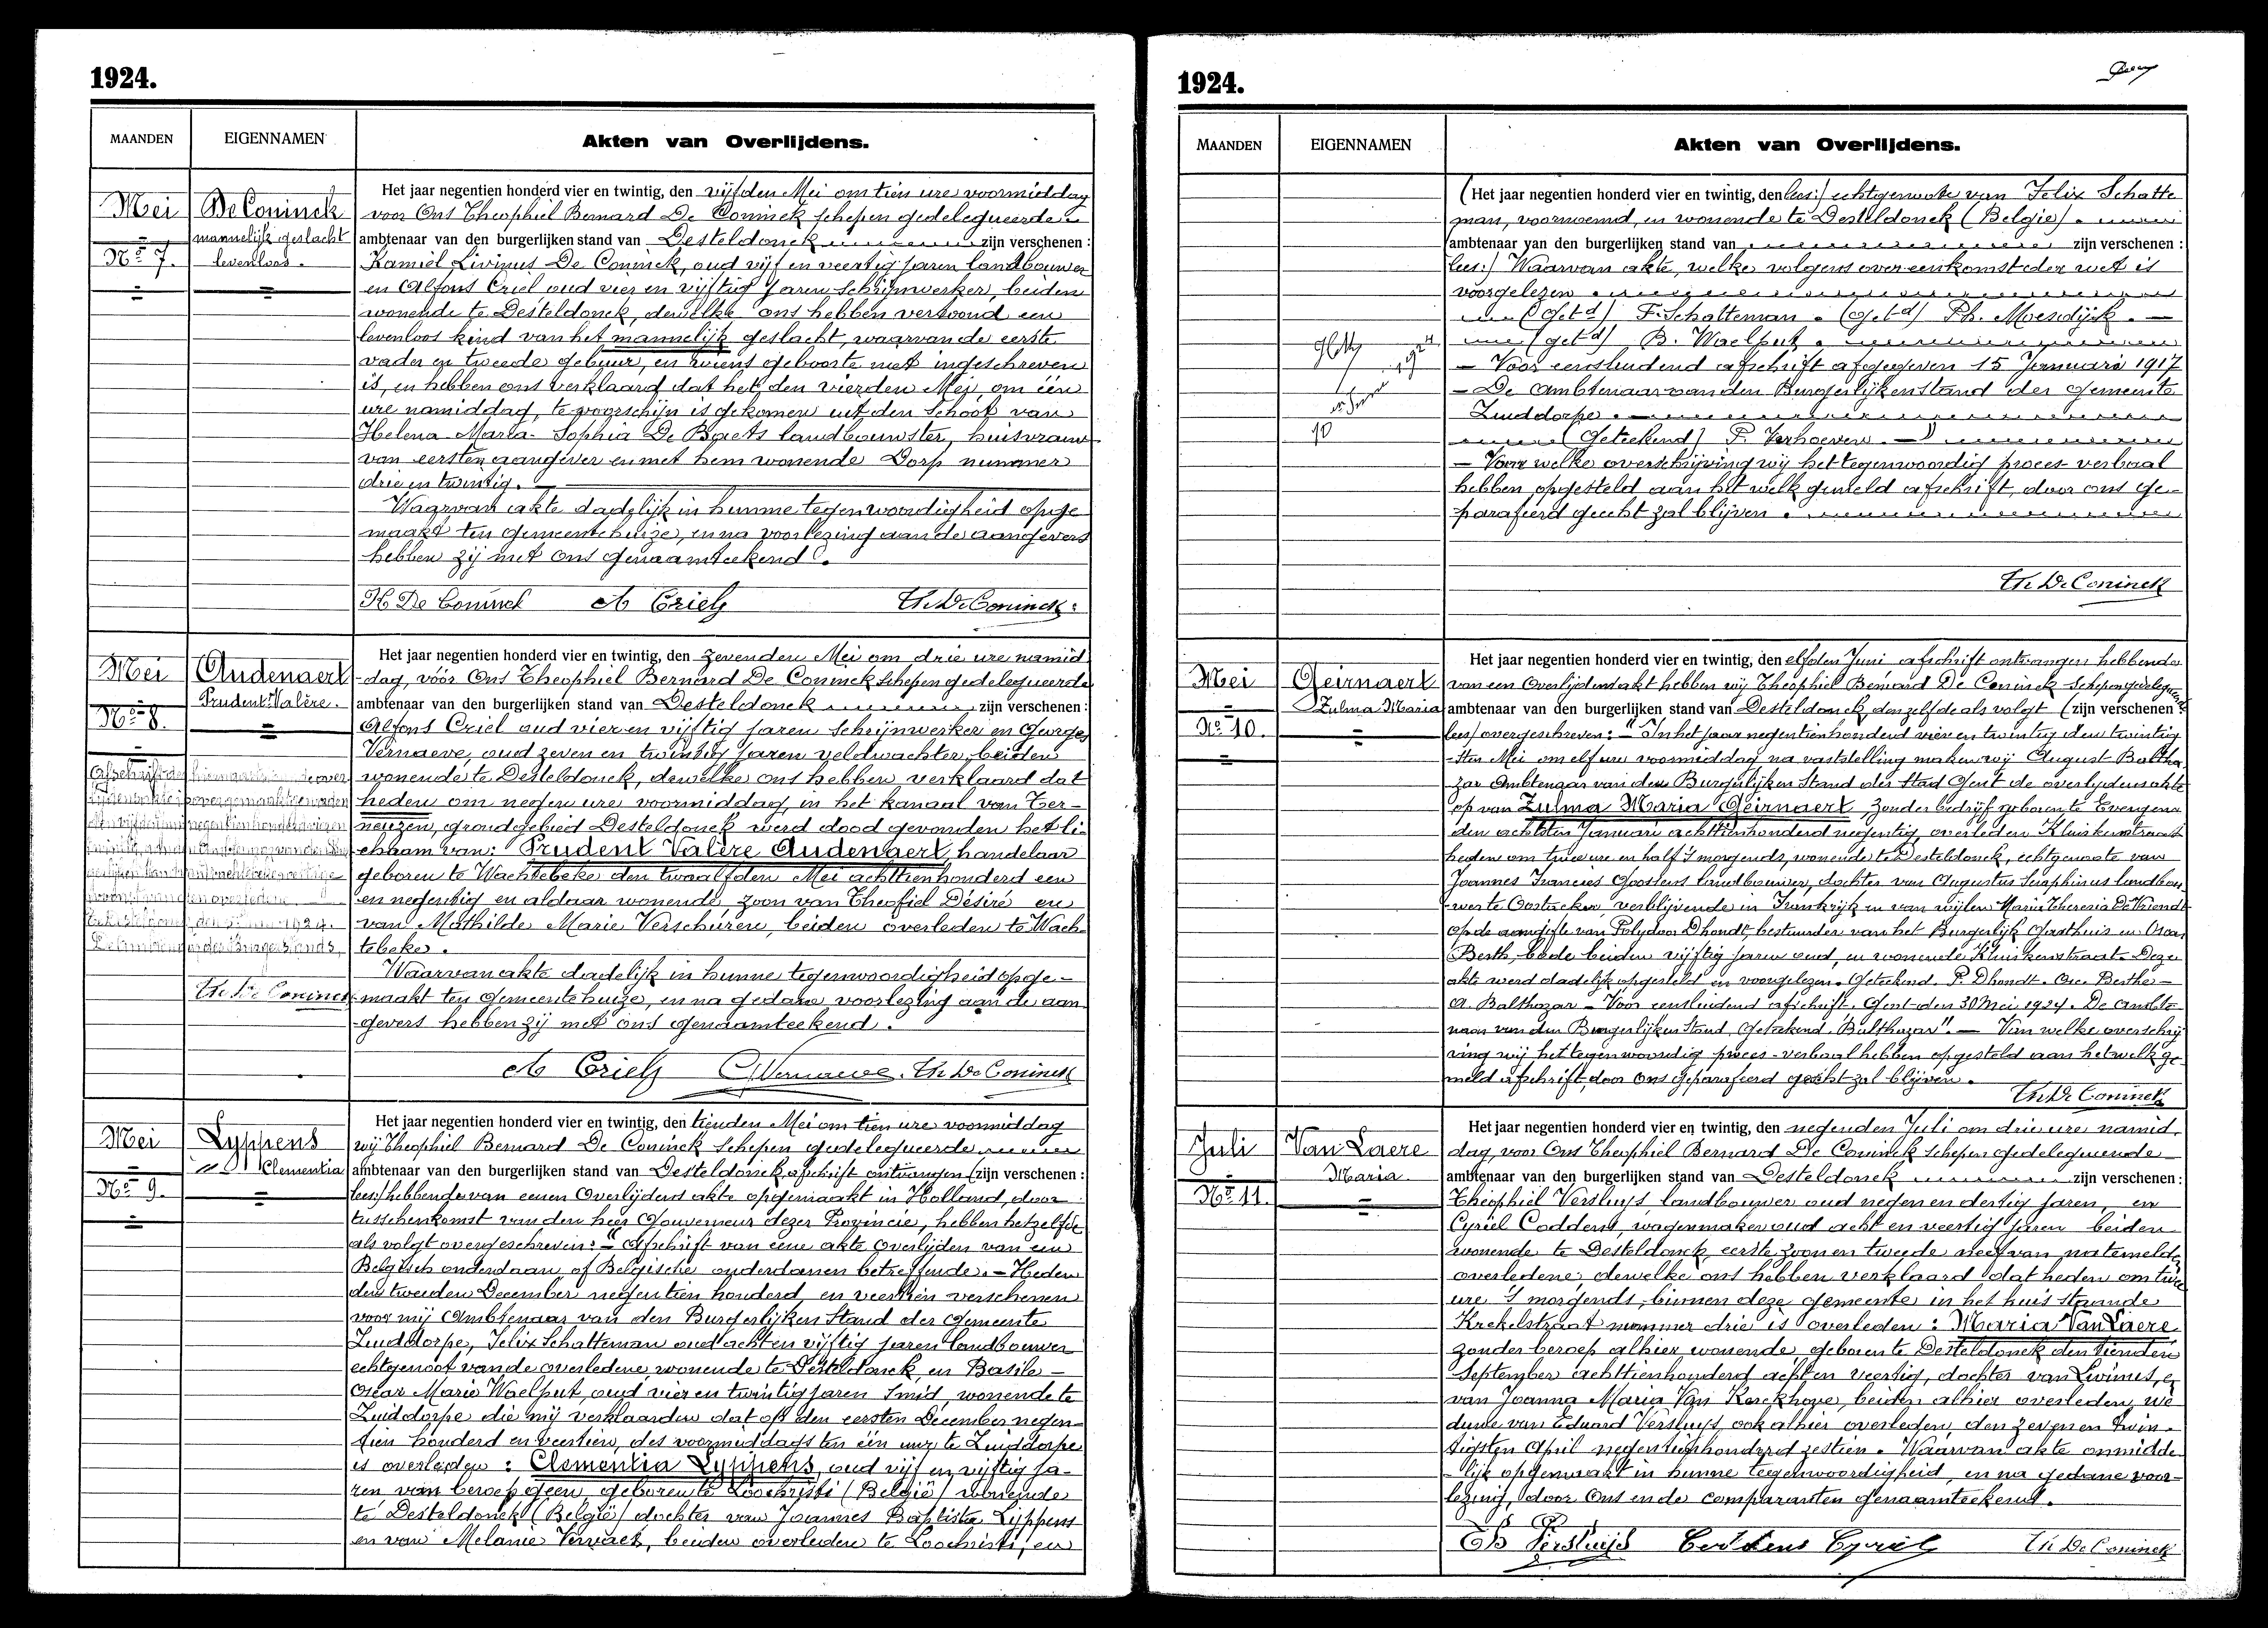 1924.
MAANDEN
EIGENNAMEN
Akten van Overlijdens.
Mei
No 7.
De Coninck
mannelijk geslacht
levenloos.
Het jaar negentien honderd vier en twintig, den vijfden Mei om tien ure voormiddag
voor Ons Theophiel Bernard De Coninck schepen gedelegueerde
ambtenaar van den burgerlijken stand van Desteldonck zijn verschenen :
Kamiel Livinus De Coninck, oud vijf en veertig jaren landbouwer
en Alfons Criel oud vier en vijftig jaren schrijnwerker, beiden
wonende te Desteldonck, dewelke ons hebben vertoond een
levenloos kind van het mannelijk geslacht, waarvan de eerste
vader en tweede gebuur, en wiens geboorte niet ingeschreven
is, en hebben ons verklaard dat het den vierden Mei, om één
ure namiddag, te voorschijn is gekomen uit den schoot van
Helena Maria Sophia De Baets landbouwster, huisvrouw
van eersten aangever en met hem wonende Dorp nummer
drie en twintig. —
Waarvan akte dadelijk in hunne tegenwoordigheid opge
maakt ten gemeentehuize, en na voorlezing aan de aangevers
hebben zij met ons genaamteekend.
K De Coninck A Criel Th. De Coninck
Mei
No 8.
Audenaert
Prudent Valère.
Th. De Coninck
Het jaar negentien honderd vier en twintig, den zevenden Mei om drie ure namid
-dag, vóór Ons Theophiel Bernard De Coninck schepen gedelegueerde
ambtenaar van den burgerlijken stand van Desteldonck zijn verschenen :
Alfons Criel oud vier en vijftig jaren schrijnwerker en Georges
Vernaeve, oud zeven en twintig jaren veldwachter, beiden
wonende te Desteldonck, dewelke ons hebben verklaard dat
heden om negen ure voormiddag, in het kanaal van Ter-
neuzen, grondgebied Desteldonck werd dood gevonden het li-
chaam van: Prudent Valère Audenaert, handelaar
geboren te Wachtebeke den twaalfden Mei achttienhonderd een
en negentig en aldaar wonende, zoon van Theofiel Désiré en
van Mathilde Marie Verschuren, beiden overleden te Wach-
tebeke.
Waarvan akte dadelijk in hunne tegenwoordigheid opge-
maakt ten gemeentehuize, en na gedane voorlezing aan de aan-
gevers hebben zij met ons genaamteekend.
A Criel G Vernaeve. Th. De Coninck
Mei
No 9.
Lyppens
Clementia
Het jaar negentien honderd vier en twintig, den tienden Mei om tien ure voormiddag
wij Theophiel Bernard De Coninck schepen gedelegueerde
ambtenaar van den burgerlijken stand van Desteldonck afschrift ontvangen (zijn verschenen :
lees:/ hebbende van eenen Overlijdens akte opgemaakt in Holland, door
tusschenkomst van den heer Gouverneur dezer Provincie, hebben hetzelfde
als volgt overgeschreven: — "Afschrift van eene akte Overlijden van een
Belgisch onderdaan of Belgische onderdanen betreffende. — Heden
den tweeden December negentien honderd en veertien verschenen
voor mij Ambtenaar van den Burgerlijken Stand der Gemeente
Zuiddorpe, Felix Schatteman oud acht en vijftig jaren landbouwer
echtgenoot van de overledene, wonende te Desteldonck en Basile-
Oscar Marie Waelput, oud vier en twintig jaren smid, wonende te
Zuiddorpe die mij verklaarden dat op den eersten December negen-
tien honderd en veertien, des voormiddags ten één uur te Zuiddorpe
is overleden : Clementia Lyppens, oud vijf en vijftig ja-
ren van beroep geen, geboren te Loochristi (België) wonende
te Desteldonck (België) dochter van Joannes Baptista Lyppens
en van Melanie Vervaet, beiden overleden te Loochristi, en
1924.
MAANDEN
EIGENNAMEN
Akten van Overlijdens.
10
1924
(Het jaar negentien honderd vier en twintig, den lees:/ echtgenoote van Felix Schatte
man, voornoemd, en wonende te Desteldonck (Belgie).
ambtenaar van den burgerlijken stand van zijn verschenen :
lees:/ Waarvan akte, welke volgens overeenkomst der wet is
voorgelezen.
(get.d) F. Schatteman. (get.d) Ph. Moesdijk. —
(get.d) B. Waelput.
— Voor eensluidend afschrift afgegeven 15 Januari 1917
— De Ambtenaar van den Burgerlijken stand der Gemeente
Zuiddorpe.
(Geteekend) P. Verhoeven. — "
— Voor welke overschrijving wij het tegenwoordig proces-verbaal
hebben opgesteld aan het welk gemeld afschrift, door ons ge-
parafeerd gehecht zal blijven.
Th. De Coninck
Mei
No 10.
Geirnaert
Zulma Maria
Het jaar negentien honderd vier en twintig, den elfden Juni afschrift ontvangen hebbende
van een Overlijdensakt hebben wij Theophiel Bernard De Coninck schepen gedelegueerde
ambtenaar van den burgerlijken stand van Desteldonck, denzelfde als volgt (zijn verschenen :
lees/ overgeschreven: — "In het jaar negentienhonderd vier en twintig den twintig
-sten Mei om elf ure voormiddag na vaststelling maken wij August Baltha-
zar Ambtenaar van den Burgerlijken Stand der Stad Gent de overlijdensakte
op van Zulma Maria Geirnaert zonder bedrijf geboren te Evergem
den achtsten Januari achttienhonderd negentig, overleden Kluiskensstraat
heden om twee ure en half 's morgends, wonende te Desteldonck, echtgenoote van
Joannes Francies Goossens landbouwer, dochter van Augustus Seraphinus landbou-
wer te Oostacker, verblijvende in Frankrijk en van wijlen Maria Theresia De Vriendt
op de aangifte van Polydoor Dhondt, bestuurder van het Burgerlijk Gasthuis en Oscar
Berth, bode beiden vijftig jaren oud, en wonende Kluiskensstraat. Deze
akte werd dadelijk opgesteld en voorgelezen. Geteekend. P. Dhondt. Osc. Berthe —
A. Balthazar — Voor eensluidend afschrift. Gent den 30 Mei 1924. De ambte-
naar van den Burgerlijken Stand, Geteekend "Balthazar". — Van welke overschrij
ving wij het tegenwoordig proces-verbaal hebben opgesteld aan hetwelk ge-
meld afschrift, door Ons geparafeerd gehecht zal blijven.
Th. De Coninck
Juli
No 11.
Van Laere
Maria
Het jaar negentien honderd vier en twintig, den negenden Juli om drie ure namid.
dag, voor Ons Theophiel Bernard De Coninck schepen gedelegueerde
ambtenaar van den burgerlijken stand van Desteldonck zijn verschenen :
Theophiel Versluys, landbouwer oud negen en dertig jaren, en
Cyriel Coddens, wagenmaker oud acht en veertig jaren beiden
wonende te Desteldonck, eerste zoon en tweede neef van natemelde
overledene; dewelke ons hebben verklaard dat heden om twee
ure 's morgends, binnen deze gemeente in het huis staande
Krekelstraat nummer drie is overleden : Maria Van Laere
zonder beroep alhier wonende geboren te Desteldonck den tienden
September achttienhonderd acht en veertig, dochter van Livinus, en
van Joanna Maria Van Kerckhove, beiden alhier overleden, we
duwe van Eduard Versluys, ook alhier overleden, den zeven en twin-
tigsten April negentienhonderd zestien. Waarvan akte onmidde-
lijk opgemaakt in hunne tegenwoordigheid, en na gedane voor-
lezing, door Ons en de comparanten genaamteekend.
Th Versluijs Coddens Cyriel Th. De Coninck